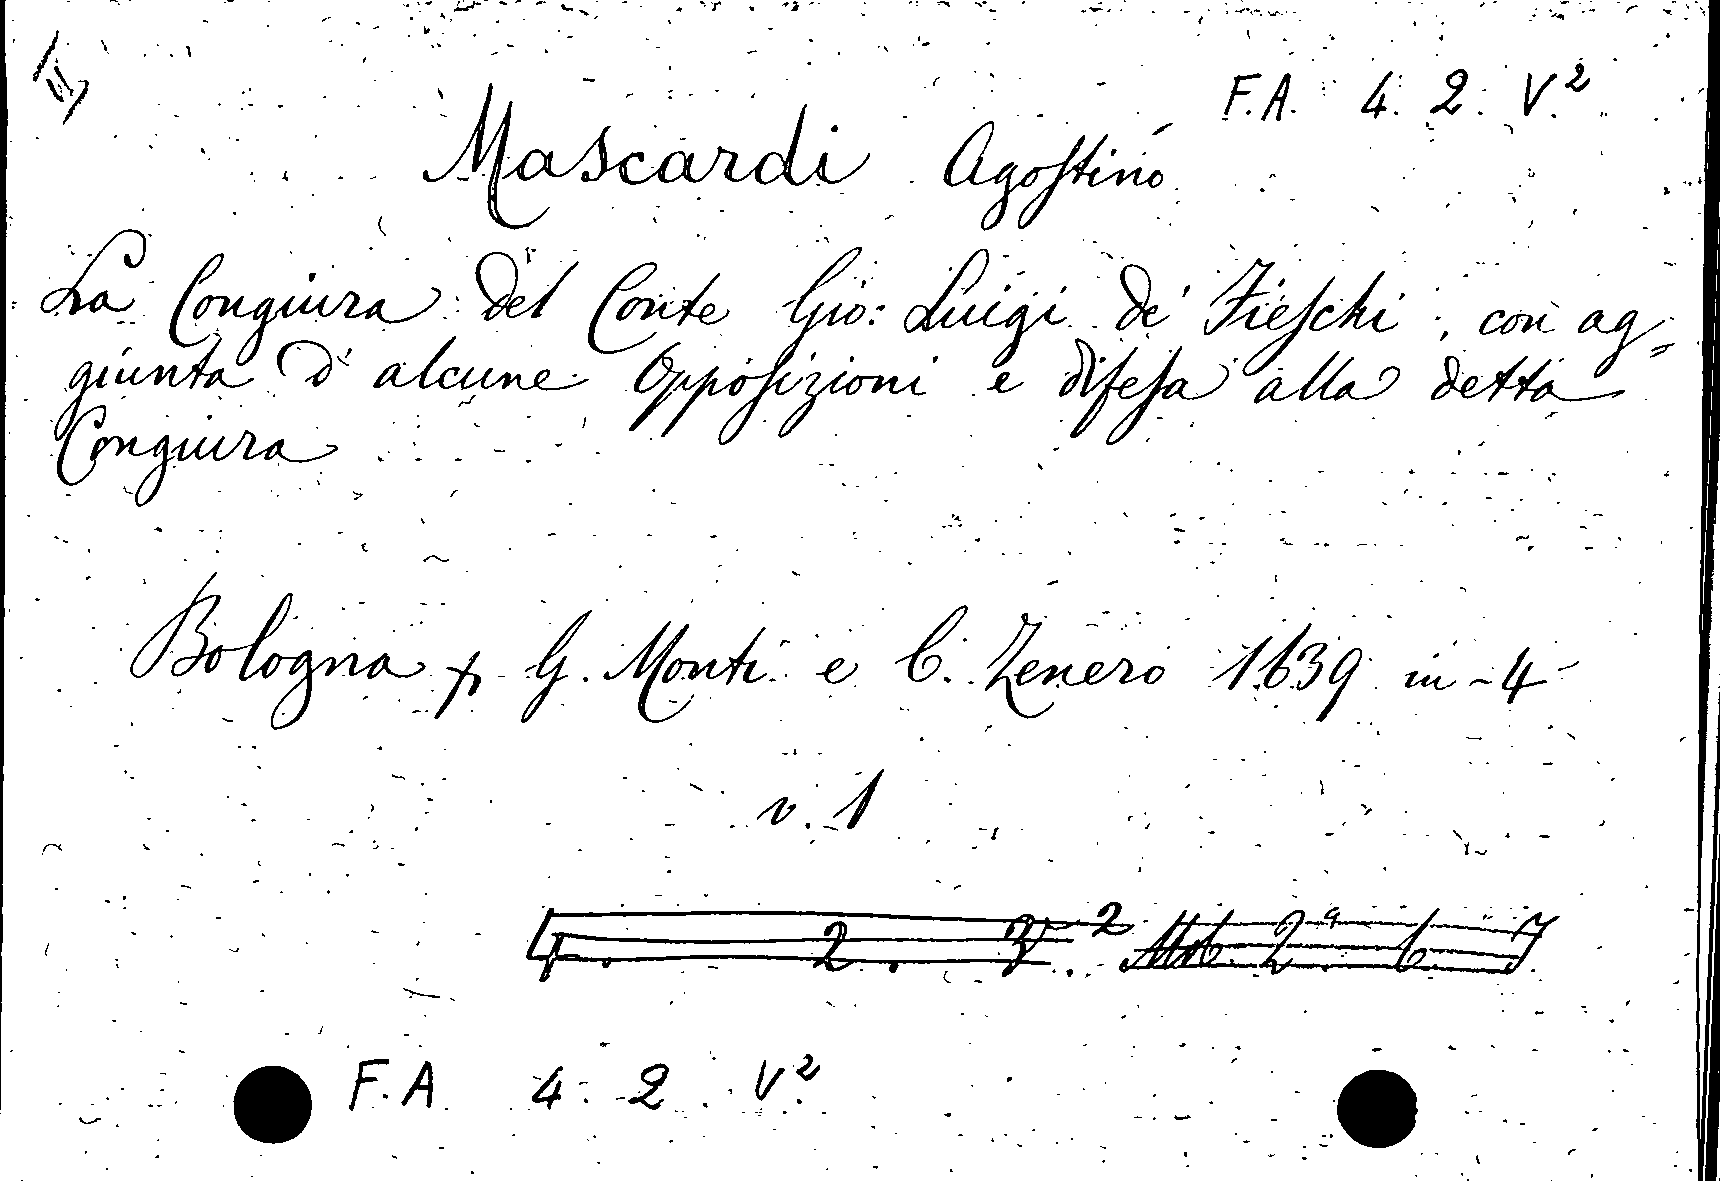 II
F.A. 4. 2. V.²
Mascardi Agostino
La Congiura del Conte Gio: Luigi de' Fieschi, con ag=
giunta d' alcune Opposizioni e difesa alla detta
Congiura
Bologna G. Monti e C. Zenero 1639 in-4
v. 1
4. 2. V². 2ª 6.
F.A 4. 2. V.²